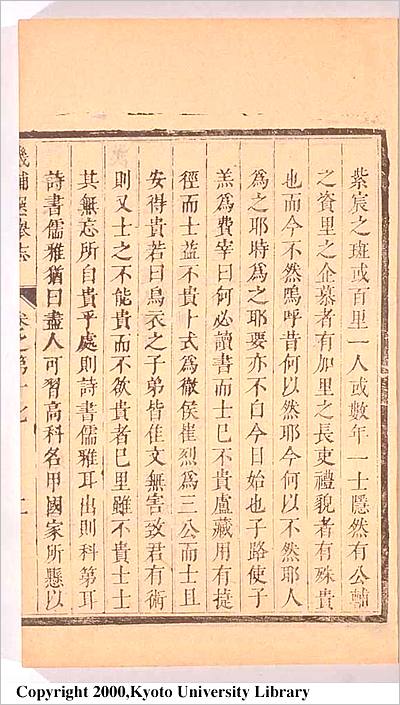 紫宸之班或百里一人或數年一士隱然有公輔
之資里之企慕者有加里之長吏禮貌者有殊貴
也而今不然嗚呼昔何以然耶今何以不然耶人
為之耶時為之耶要亦不自今日始也子路使子
羔為費宰曰何必讀書而士已不貴盧藏用有捷
徑而士益不貴卜式為徹侯崔烈為三公而士且
安得貴若曰烏衣之子弟皆佳文無害致君有術
則又士之不能貴而不欲貴者已里雖不貴士士
其無忘所自貴乎處則詩書儒雅耳出則科第耳
詩書儒雅猶曰盡人可習高科名甲國家所懸以
志
Copyright 2000,Kyoto University Library